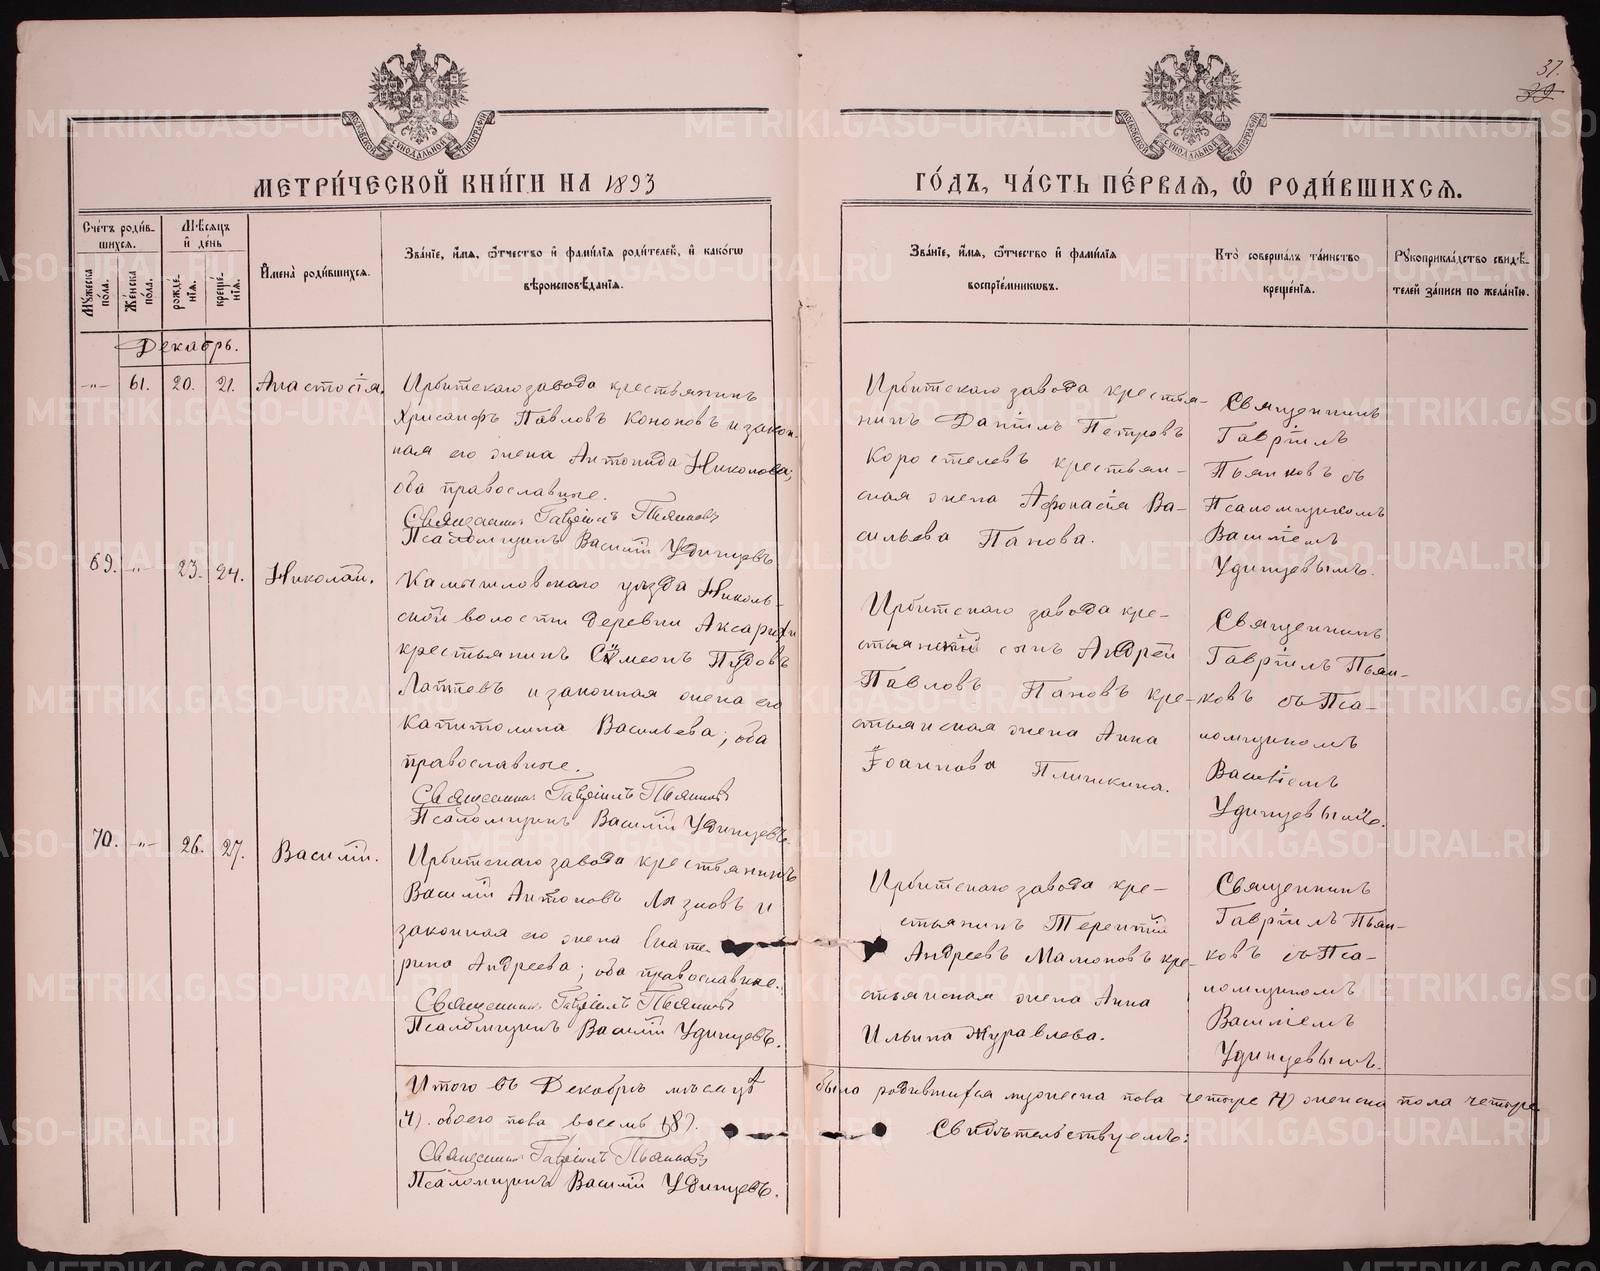 37.
39
МОСКОВСКОЙ СѴНОДАЛЬНОЙ ТИПОГРАФІИ
МОСКОВСКОЙ СѴНОДАЛЬНОЙ ТИПОГРАФІИ
МЕТРИ́ЧЕСКОЙ КНИ́ГИ НА 1893
ГО́ДЪ, ЧА́СТЬ ПЕ́РВАЯ, Ѽ РОДИ́ВШИХСЯ.
Сче́тъ роди́в-
шихся.
Мѣ́сяцъ
и҆ де́нь
Мꙋ́жеска по́ла.
Же́нска по́ла.
рожде́-
нїѧ.
креще́-
нїѧ.
И҆мена̀ роди́вшихся.
Зва́нїе, и҆́мѧ, ѻ҆́тчество и҆ фами́лїѧ роди́телей, и҆ како́гѡ
вѣроисповѣ́данїѧ.
Зва́нїе, и҆́мѧ, ѻ҆́тчество и҆ фами́лїѧ
воспрїе́мникѡвъ.
Кто̀ соверша́лъ та́инство
креще́нїѧ.
Рꙋкоприкла́дство свидѣ́-
телей за́писи по жела́нїю.
Декабрь.
-"- 61. 20. 21. Анастасія.
Ирбитскаго завода крестьянинъ
Хрисанфъ Павловъ Кононовъ и закон-
ная его жена Антонида Николаева;
оба православные.
Священникъ Гавріилъ Пьянковъ
Псаломщикъ Василій Удинцевъ
Ирбитскаго завода крестья-
нинъ Даніилъ Петровъ
Коростелевъ крестьян-
ская жена Афонасія Ва-
сильева Панова.
Священникъ
Гавріилъ
Пьянковъ съ
Псаломщикомъ
Василіемъ
Удинцевымъ.
69. -"- 23. 24. Николай.
Камышловскаго уѣзда Николь-
ской волости деревни Аксарихи
крестьянинъ Сѵмеонъ Пудовъ
Лаптевъ и законная жена его
Капитолина Васильева; оба
православные.
Священникъ Гавріилъ Пьянковъ
Псаломщикъ Василій Удинцевъ.
Ирбитскаго завода кре-
стьянскій сынъ Андрей
Павловъ Пановъ кре-
стьянская жена Анна
Іоаннова Плишкина.
Священникъ
Гавріилъ Пьян-
ковъ съ Пса-
ломщикомъ
Василіемъ
Удинцевымъ.
70. -"- 26. 27. Василій.
Ирбитскаго завода крестьянинъ
Василій Антоновъ Лязновъ и
законная его жена Екате-
рина Андреева; оба православные.
Священникъ Гавріилъ Пьянковъ
Псаломщикъ Василій Удинцевъ.
Ирбитскаго завода кре-
стьянинъ Терентій
Андреевъ Мамоновъ кре-
стьянская жена Анна
Ильина Журавлева.
Священникъ
Гавріилъ Пьян-
ковъ съ Пса-
ломщикомъ
Василіемъ
Удинцевымъ.
Итого въ Декабрѣ мѣсяцѣ было родившихся мужеска пола четыре 4) женска пола четыре
4). обоего пола восемь (8).
Свидѣтельствуемъ:
Священникъ Гавріилъ Пьянковъ
Псаломщикъ Василій Удинцевъ.
METRIKI.GASO-URAL.RU